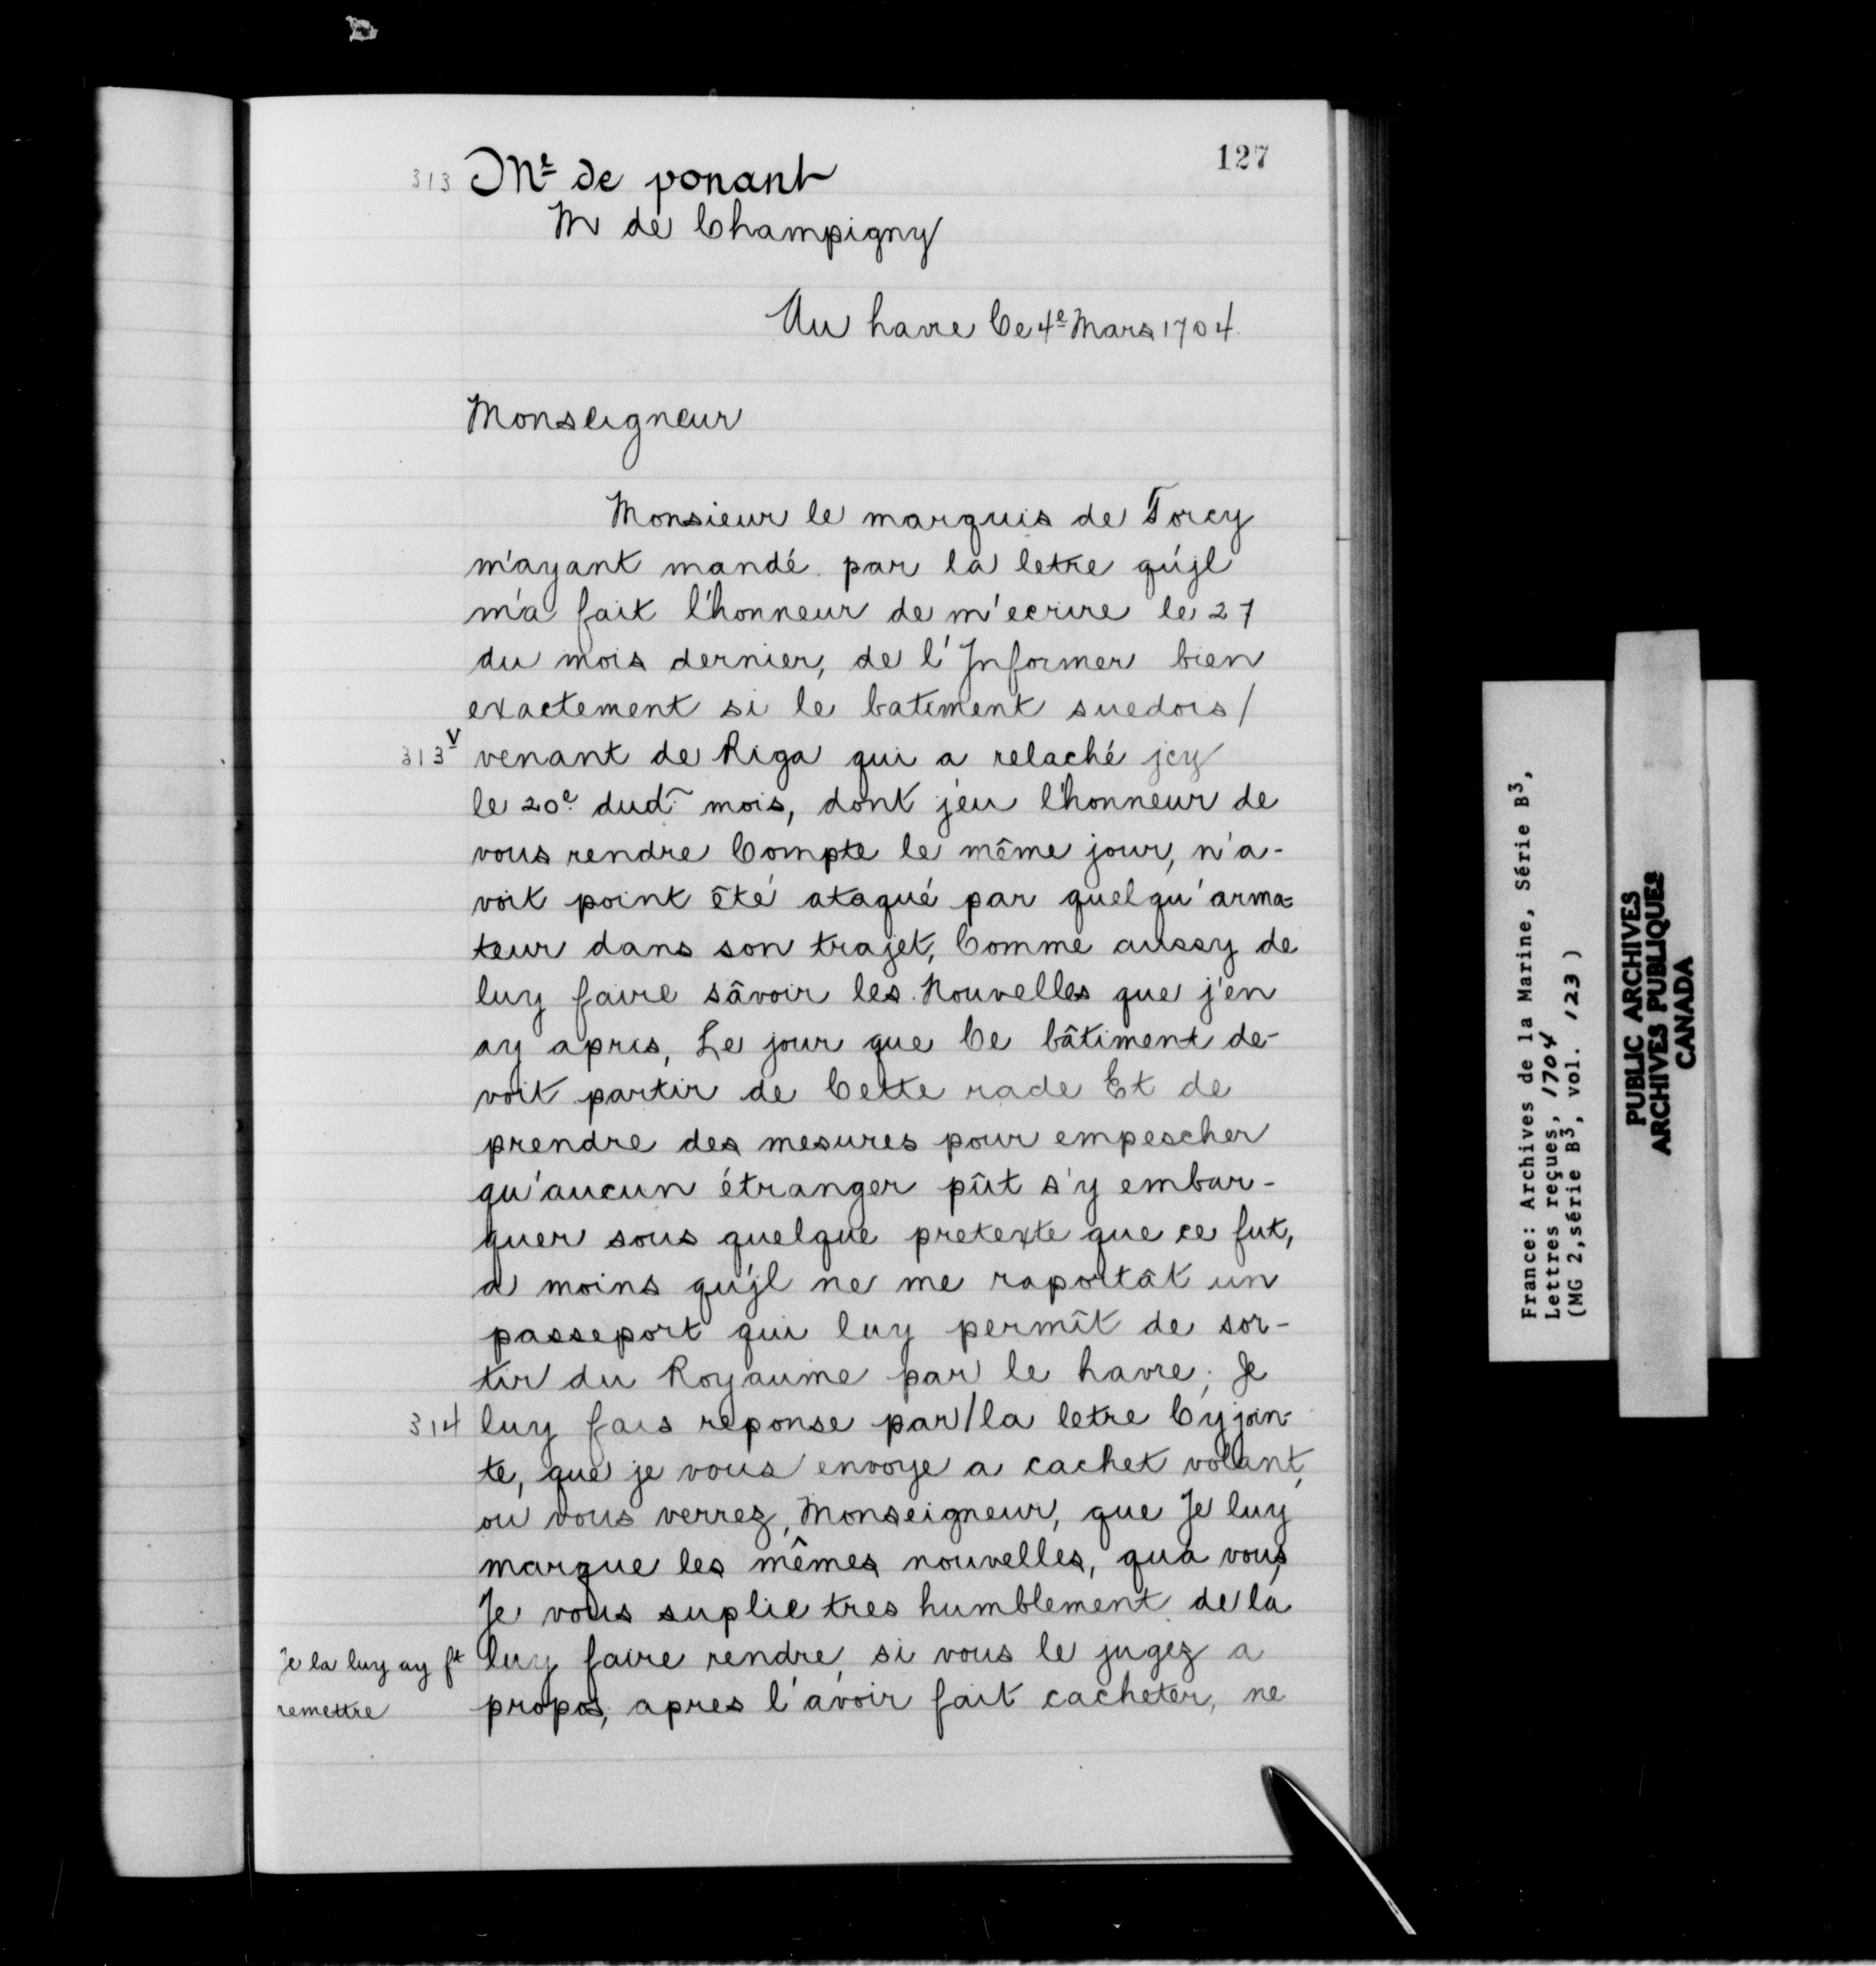 127
313 Mʳ de ponant
M de Champigny
Au havre Ce 4ᵉ Mars 1704.
Monseigneur
Monsieur le marquis de Torcy
m'ayant mandé par la letre qu'jl
m'a fait l'honneur de m'ecrire le 27
du mois dernier, de l'Informer bien
exactement si le batiment suedois/
313ᵛ venant de Riga qui a relaché jcy
le 20ᵉ. dud. mois, dont j'eu l'honneur de
vous rendre Compte le même jour, n'a-
voit point êté ataqué par quelqu'arma=
teur dans son trajet, Comme aussy de
luy faire sâvoir les Nouvelles que j'en
ay apris, Le jour que Ce bâtiment de-
voit partir de Cette rade Et de
prendre des mesures pour empescher
qu'aucun étranger pût s'y embar-
quer sous quelque pretexte que ce fut,
a moins qu'jl ne me raportât un
passeport qui luy permît de sor-
tir du Royaume par le havre; Je
314 luy fais reponse par/la letre Cy join-
te, que je vous envoye a cachet volant,
ou vous verrez, Monseigneur, que Je luy
marque les mêmes nouvelles, qua vous,
Je vous suplie tres humblement de la
Je la luy ay fᵗ luy faire rendre, si vous le jugez a
remettre propos, apres l'avoir fait cacheter, ne
France: Archives de la Marine, Série B³,
Lettres reçues, 1704
(MG 2, série B³, vol. 123 )
PUBLIC ARCHIVES
ARCHIVES PUBLIQUES
CANADA